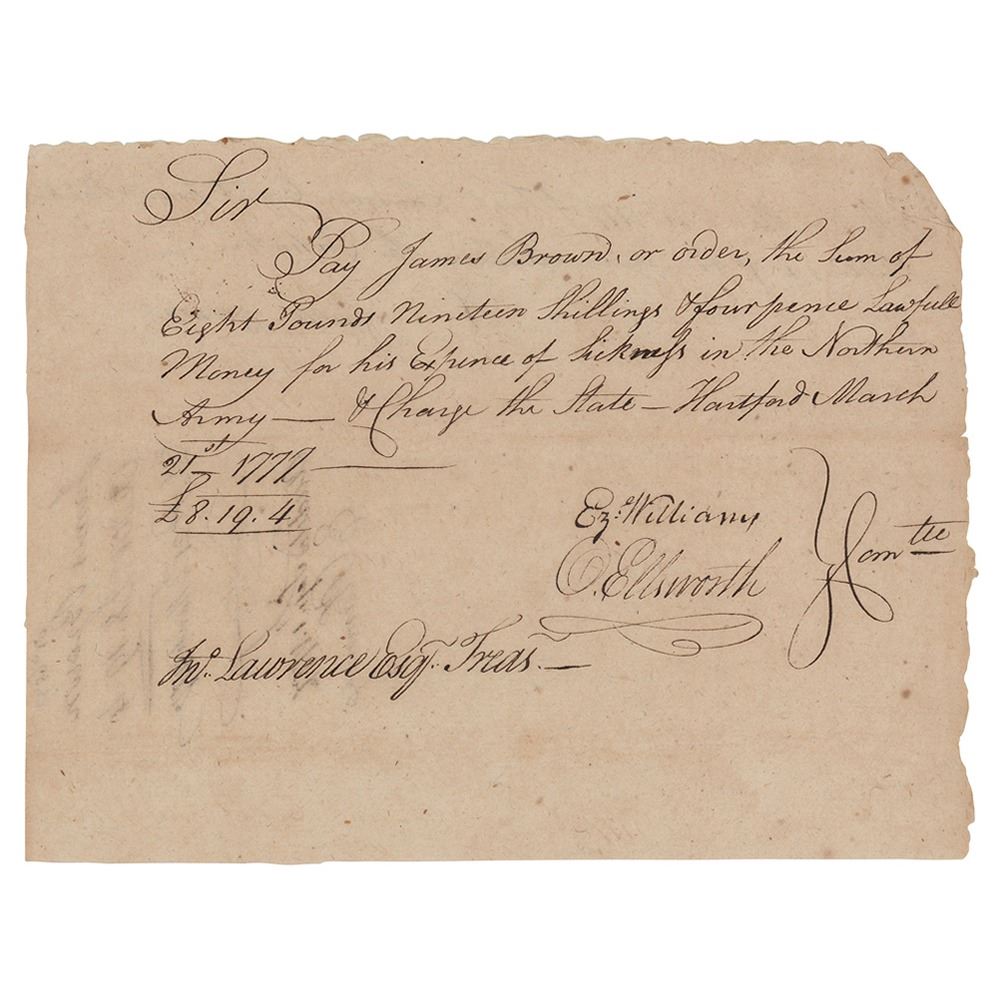 Sir
Pay James Brown, or order, the Sum of
Eight Pounds Nineteen Shillings & four pence Lawfull
Money for his Expence of Sickness in the Northern
Army — & Charge the State — Hartford March
21st 1777
£8.19.4
Ez. Williams
O. Ellsworth
Comtte
Jno. Lawrence Esqr. Treasr. —